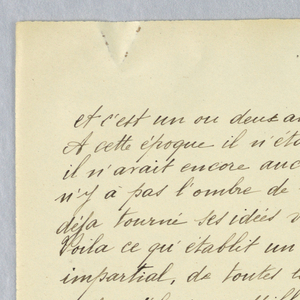 et c'est un ou deux an
A cette époque il n'éta
il n'avait encore auc
n'y à pas l'ombre de
déja tourné ses idées v
Voila ce qu'établit un
impartial, de toutes l